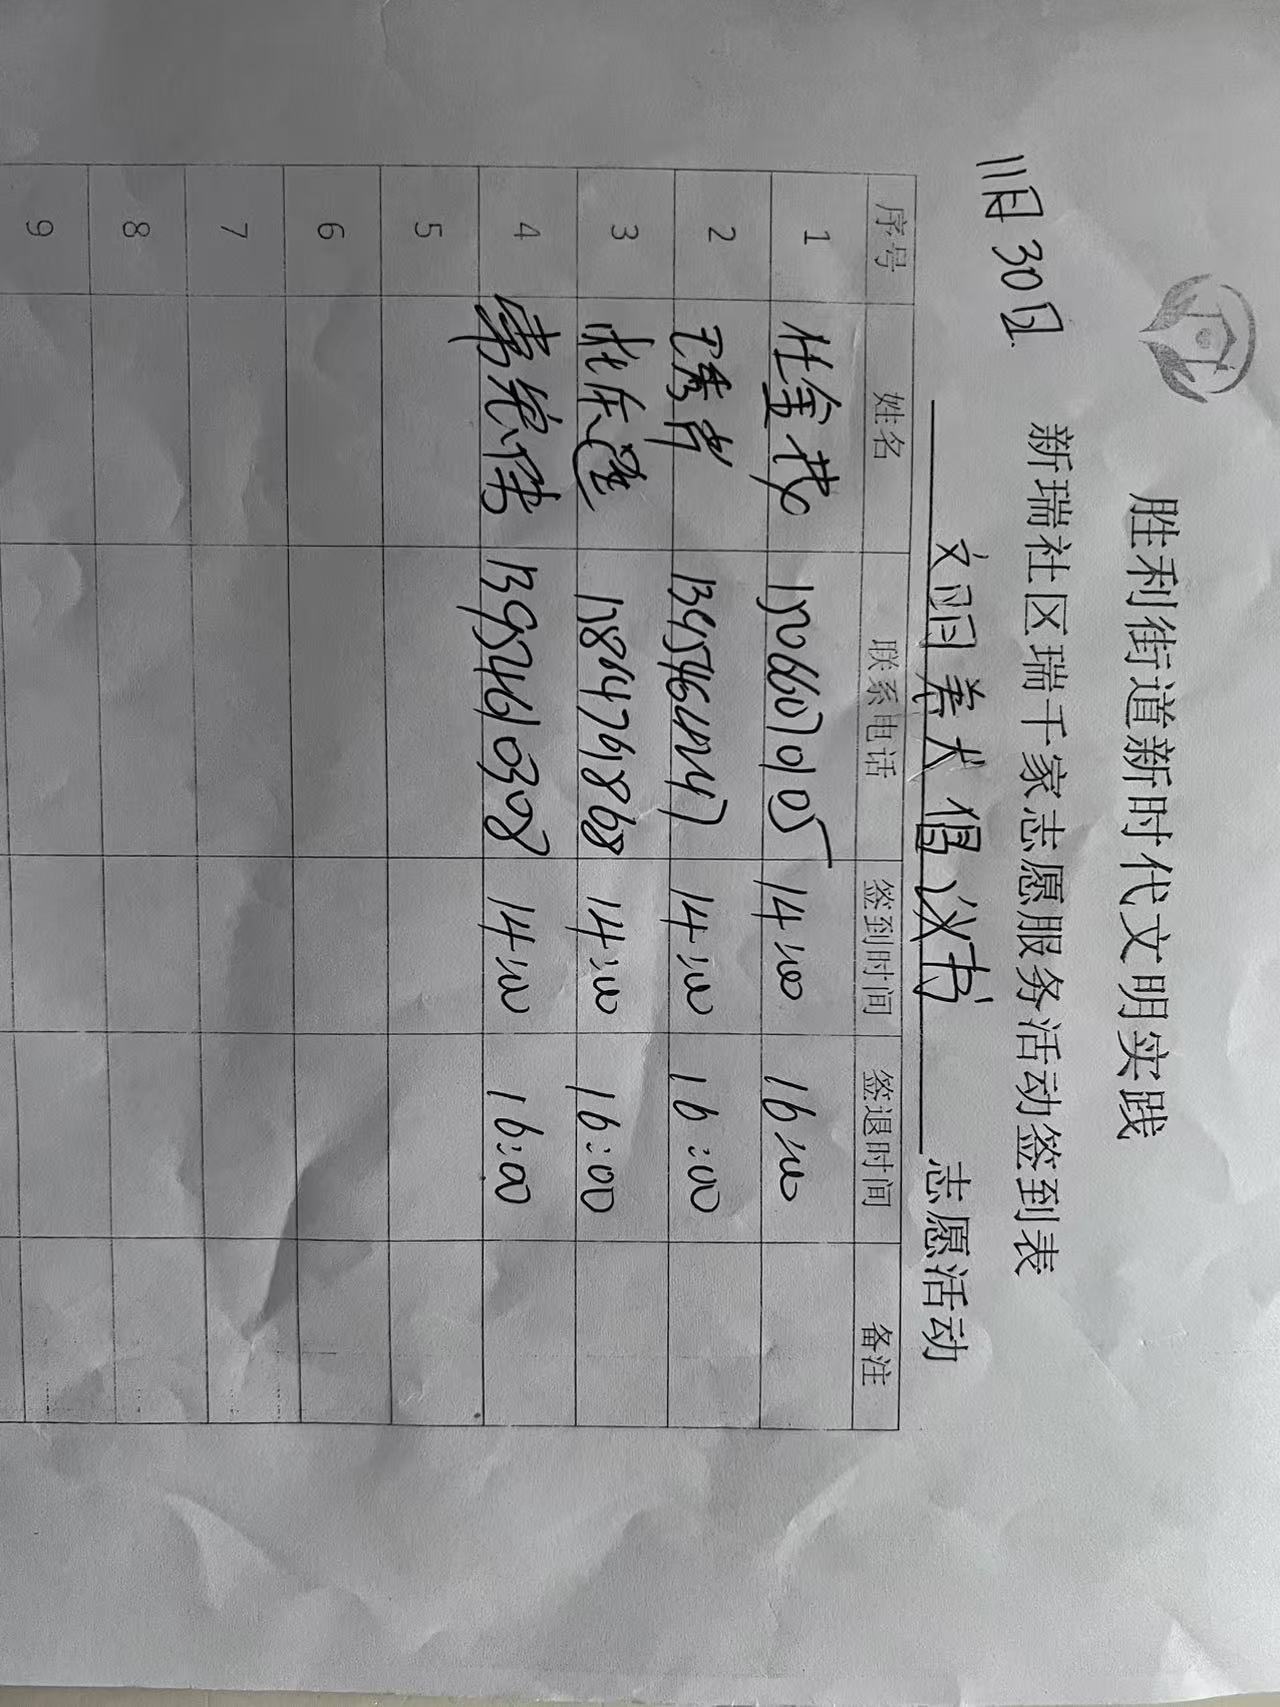 胜利街道新时代文明实践
新瑞社区瑞千家志愿服务活动签到表
11月30日
文明养犬倡议书 志愿活动
序号 姓名 联系电话 签到时间 签退时间 备注
1 杜金 14:00 16:00
2 14:00 16:00
3 17864761868 14:00 16:00
4 13954610308 14:00 16:00
5
6
7
8
9